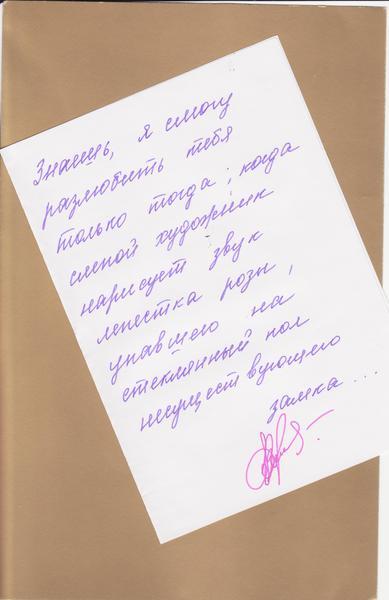 Знаешь, я смогу
разлюбить тебя
только тогда, когда
слепой художник
нарисует звук
лепестка розы,
упавшего на
стеклянный пол
несуществующего
замка...